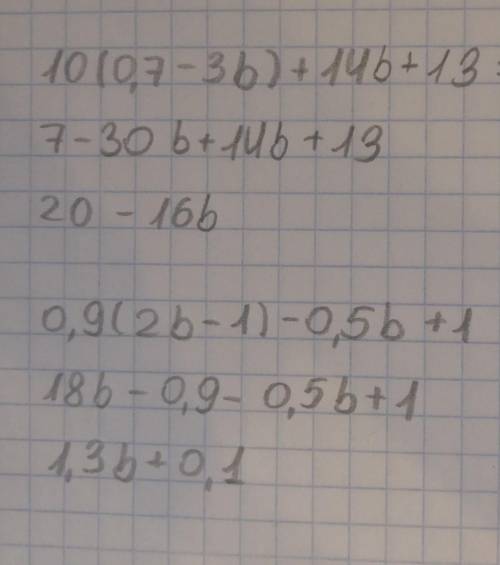 10(0,7-3b)+14b+13=
7-30b+14b+13
20-16b
0,9(2b-1)-0,5b+1
18b-0,9-0,5b+1
1,3b+0,1